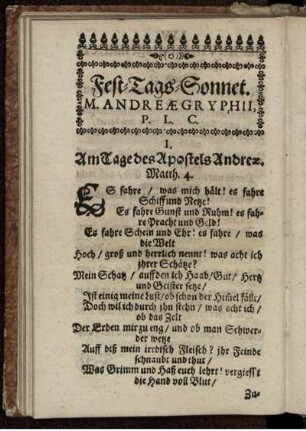 Fest-Tags-Sonnet.
M. ANDREÆ GRYPHII,
P. L. C.
I.
Am Tage des Apostels Andreæ.
Matth. 4.
ES fahre / was mich hält! es fahre
Schiff und Netze!
Es fahre Gunst und Ruhm! es fah-
re Pracht und Geld!
Es fahre Schein und Ehr! es fahre / was
die Welt
Hoch / groß und herrlich nennt! was acht ich
jhrer Schätze?
Mein Schatz / auff den ich Haab / Gut / Hertz
und Geister setze /
Ist einig meine Lust / ob schon der Him̃el fällt /
Doch wil ich durch jhn stehn / was acht ich /
ob das Zelt
Der Erden mir zu eng / und ob man Schwer-
der wetze
Auff diß mein irrdisch Fleisch? jhr Feinde
schnaubt und thut /
Was Grimm und Haß euch lehrt! vergiess't
die Hand voll Blut /
Zu-